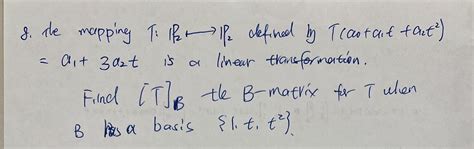 8. the mapping T: P₂ ⟼ P₂ defined by T(a₀+a₁t+a₂t²)
= a₁ + 3a₂t is a linear transformation.
Find [T]_B the B-matrix for T when
B is a basis {1, t, t²}.